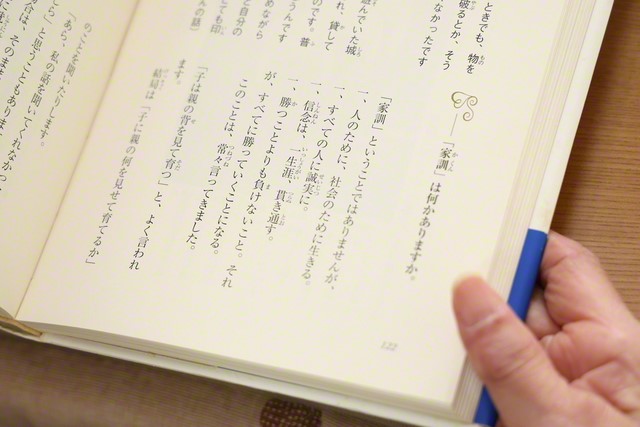 ときでも、物を
破るとか、そう
なかったです
遊んでいた城
れ、貸して
のです。普
うんです
めながら
と自分の
とても印
人の話）
――「家訓」は何かありますか。
「家訓」ということではありませんが、
一、人のために、社会のために生きる。
一、すべての人に誠実に。
一、信念は、一生涯、貫き通す。
一、勝つことよりも負けないこと。それ
が、すべてに勝っていくことになる。
このことは、常々言ってきました。
「子は親の背を見て育つ」と、よく言われ
ます。
結局は「子に親の何を見せて育てるか」
のことを聞いたりします。
「あら、私の話を聞いてくれなかっ
と思うこともありま
そのまま
122